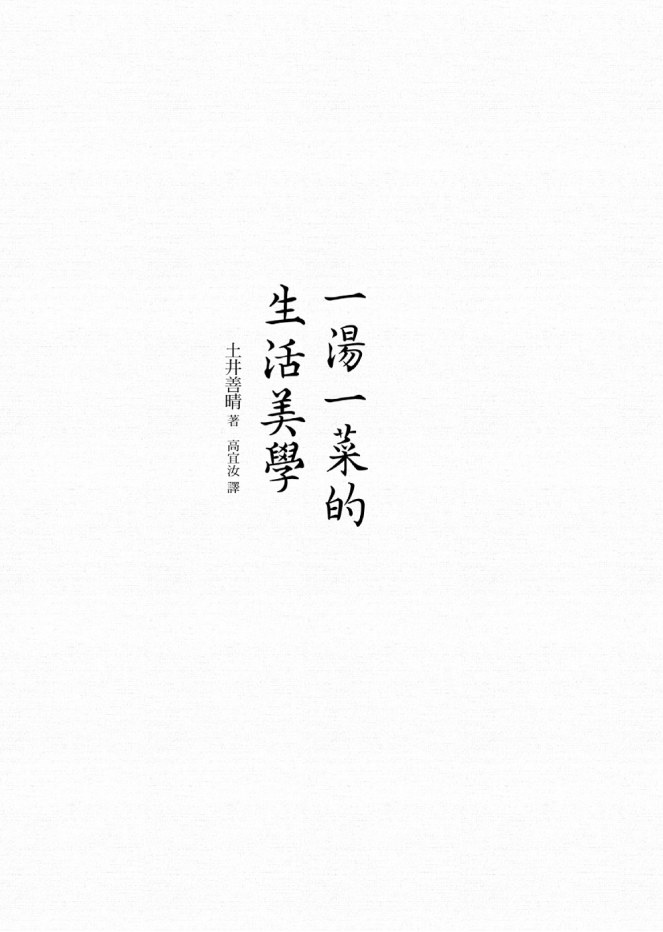 一湯一菜的
生活美學
土井善晴 著 高宜汝 譯